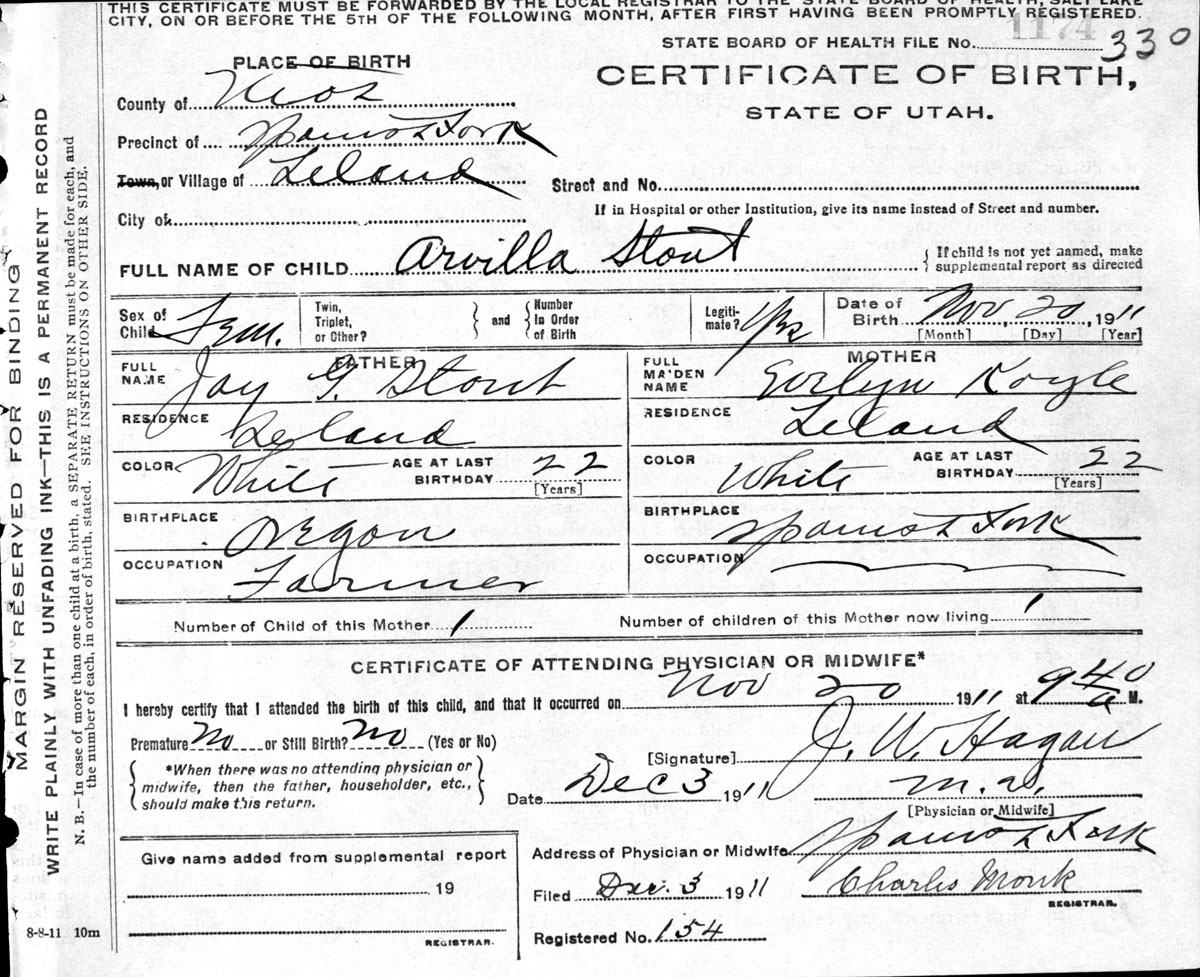 THIS CERTIFICATE MUST BE FORWARDED BY THE LOCAL REGISTRAR TO THE STATE BOARD OF HEALTH, SALT LAKE
CITY, ON OR BEFORE THE 5TH OF THE FOLLOWING MONTH, AFTER FIRST HAVING BEEN PROMPTLY REGISTERED.
1174
STATE BOARD OF HEALTH FILE No. 330
PLACE OF BIRTH
CERTIFICATE OF BIRTH,
STATE OF UTAH.
County of
Precinct of Spanish Fork
Town, or Village of Leland
Street and No.
City of
If in Hospital or other Institution, give its name instead of Street and number.
FULL NAME OF CHILD Arvilla Stout
{ If child is not yet named, make
supplemental report as directed
Sex of Child Fem.
Twin, Triplet, or Other?
} and {
Number In Order of Birth
Legitimate? Yes
Date of Birth Nov, 20, 1911
[Month] [Day] [Year]
FATHER
FULL NAME Jay G. Stout
RESIDENCE Leland
COLOR White
AGE AT LAST BIRTHDAY 22
[Years]
BIRTHPLACE Oregon
OCCUPATION Farmer
MOTHER
FULL MAIDEN NAME Evelyn Koyle
RESIDENCE Leland
COLOR White
AGE AT LAST BIRTHDAY 22
[Years]
BIRTHPLACE Spanish Fork
OCCUPATION
Number of Child of this Mother 1
Number of children of this Mother now living 1
CERTIFICATE OF ATTENDING PHYSICIAN OR MIDWIFE*
I hereby certify that I attended the birth of this child, and that it occurred on Nov 20 1911 at 9 40 a M.
Premature No or Still Birth? No (Yes or No)
[Signature] J. W. Hagan
{ *When there was no attending physician or
midwife, then the father, householder, etc.,
should make this return. }
Date Dec 3 1911
M.D.
[Physician or Midwife]
Give name added from supplemental report
19
REGISTRAR.
Address of Physician or Midwife Spanish Fork
Filed Dec. 3 1911
Charles Monk
REGISTRAR.
Registered No. 154
8-8-11 10m
MARGIN RESERVED FOR BINDING
WRITE PLAINLY WITH UNFADING INK—THIS IS A PERMANENT RECORD
N. B.—In case of more than one child at a birth, a SEPARATE RETURN must be made for each, and
the number of each, in order of birth, stated. SEE INSTRUCTIONS ON OTHER SIDE.